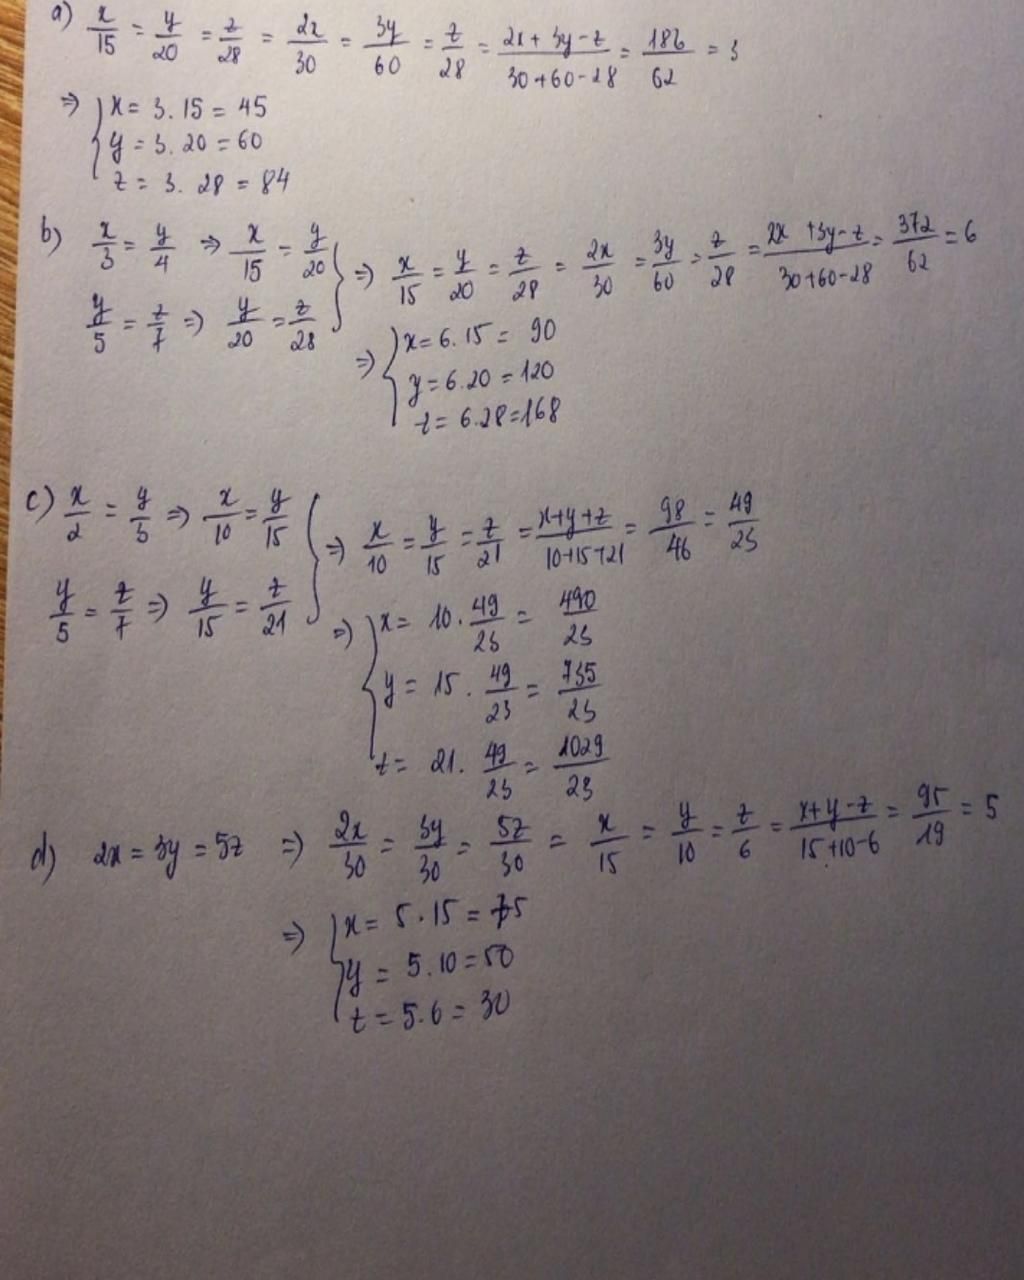 a) x/15 = y/20 = z/28 = 2x/30 = 3y/60 = z/28 = (2x + 3y - z)/(30 + 60 - 28) = 186/62 = 3
⇒ { x = 3.15 = 45
y = 3.20 = 60
z = 3.28 = 84
b) x/3 = y/4 ⇒ x/15 = y/20
y/5 = z/7 ⇒ y/20 = z/28 } ⇒ x/15 = y/20 = z/28 = 2x/30 = 3y/60 = z/28 = (2x + 3y - z)/(30 + 60 - 28) = 372/62 = 6
⇒ { x = 6.15 = 90
y = 6.20 = 120
z = 6.28 = 168
c) x/2 = y/3 ⇒ x/10 = y/15
y/5 = z/7 ⇒ y/15 = z/21 } ⇒ x/10 = y/15 = z/21 = (x + y + z)/(10 + 15 + 21) = 98/46 = 49/23
⇒ { x = 10 . 49/23 = 490/23
y = 15 . 49/23 = 735/23
z = 21 . 49/23 = 1029/23
d) 2x = 3y = 5z ⇒ 2x/30 = 3y/30 = 5z/30 = x/15 = y/10 = z/6 = (x + y - z)/(15 + 10 - 6) = 95/19 = 5
⇒ { x = 5.15 = 75
y = 5.10 = 50
z = 5.6 = 30